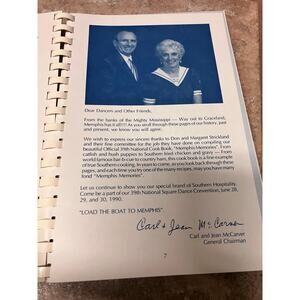 Dear Dancers and Other Friends,
From the banks of the Mighty Mississippi — Way out to Graceland,
Memphis has it all!!! As you stroll through these pages of our history, past
and present, we know you will agree.
We wish to express our sincere thanks to Don and Margaret Strickland
and their fine committee for the job they have done on compiling our
beautiful Official 39th National Cook Book, "Memphis Memories". From
catfish and hush puppies to Southern fried chicken and gravy — From
world famous bar-b-cue to country ham, this cook book is a fine example
of true Southern cooking. In years to come, as you look back through these
pages, and each time you try one of the many recipes, may you have many
fond "Memphis Memories".
Let us continue to show you our special brand of Southern Hospitality.
Come be a part of our 39th National Square Dance Convention, June 28,
29, and 30, 1990.
"LOAD THE BOAT TO MEMPHIS"
Carl & Jean McCarver
Carl and Jean McCarver
General Chairman
7